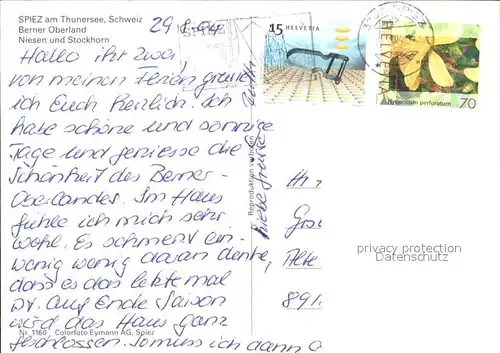 SPIEZ am Thunersee, Schweiz
Berner Oberland
Niesen und Stockhorn
29.8.04
15 HELVETIA
HELVETIA
Hypericum perforatum
70
Hallo ihr zwei,
von meinen Ferien grüsse
ich Euch herzlich. Ich
habe schöne und sonnige
Tage und geniesse die
Schönheit des Berner-
Oberlandes. Im Haus
fühle ich mich sehr
wohl. Es schmerzt ein
wenig wenig daran denke,
dass es das letzte mal
ist. Auf Ende Saison
wird das Haus ganz
geschlossen. So muss ich dann
Liebe Grüsse
Reproduktion verboten
891
privacy protection
DELCAMPE
Nr. 1160 Colorfoto Eymann AG, Spiez